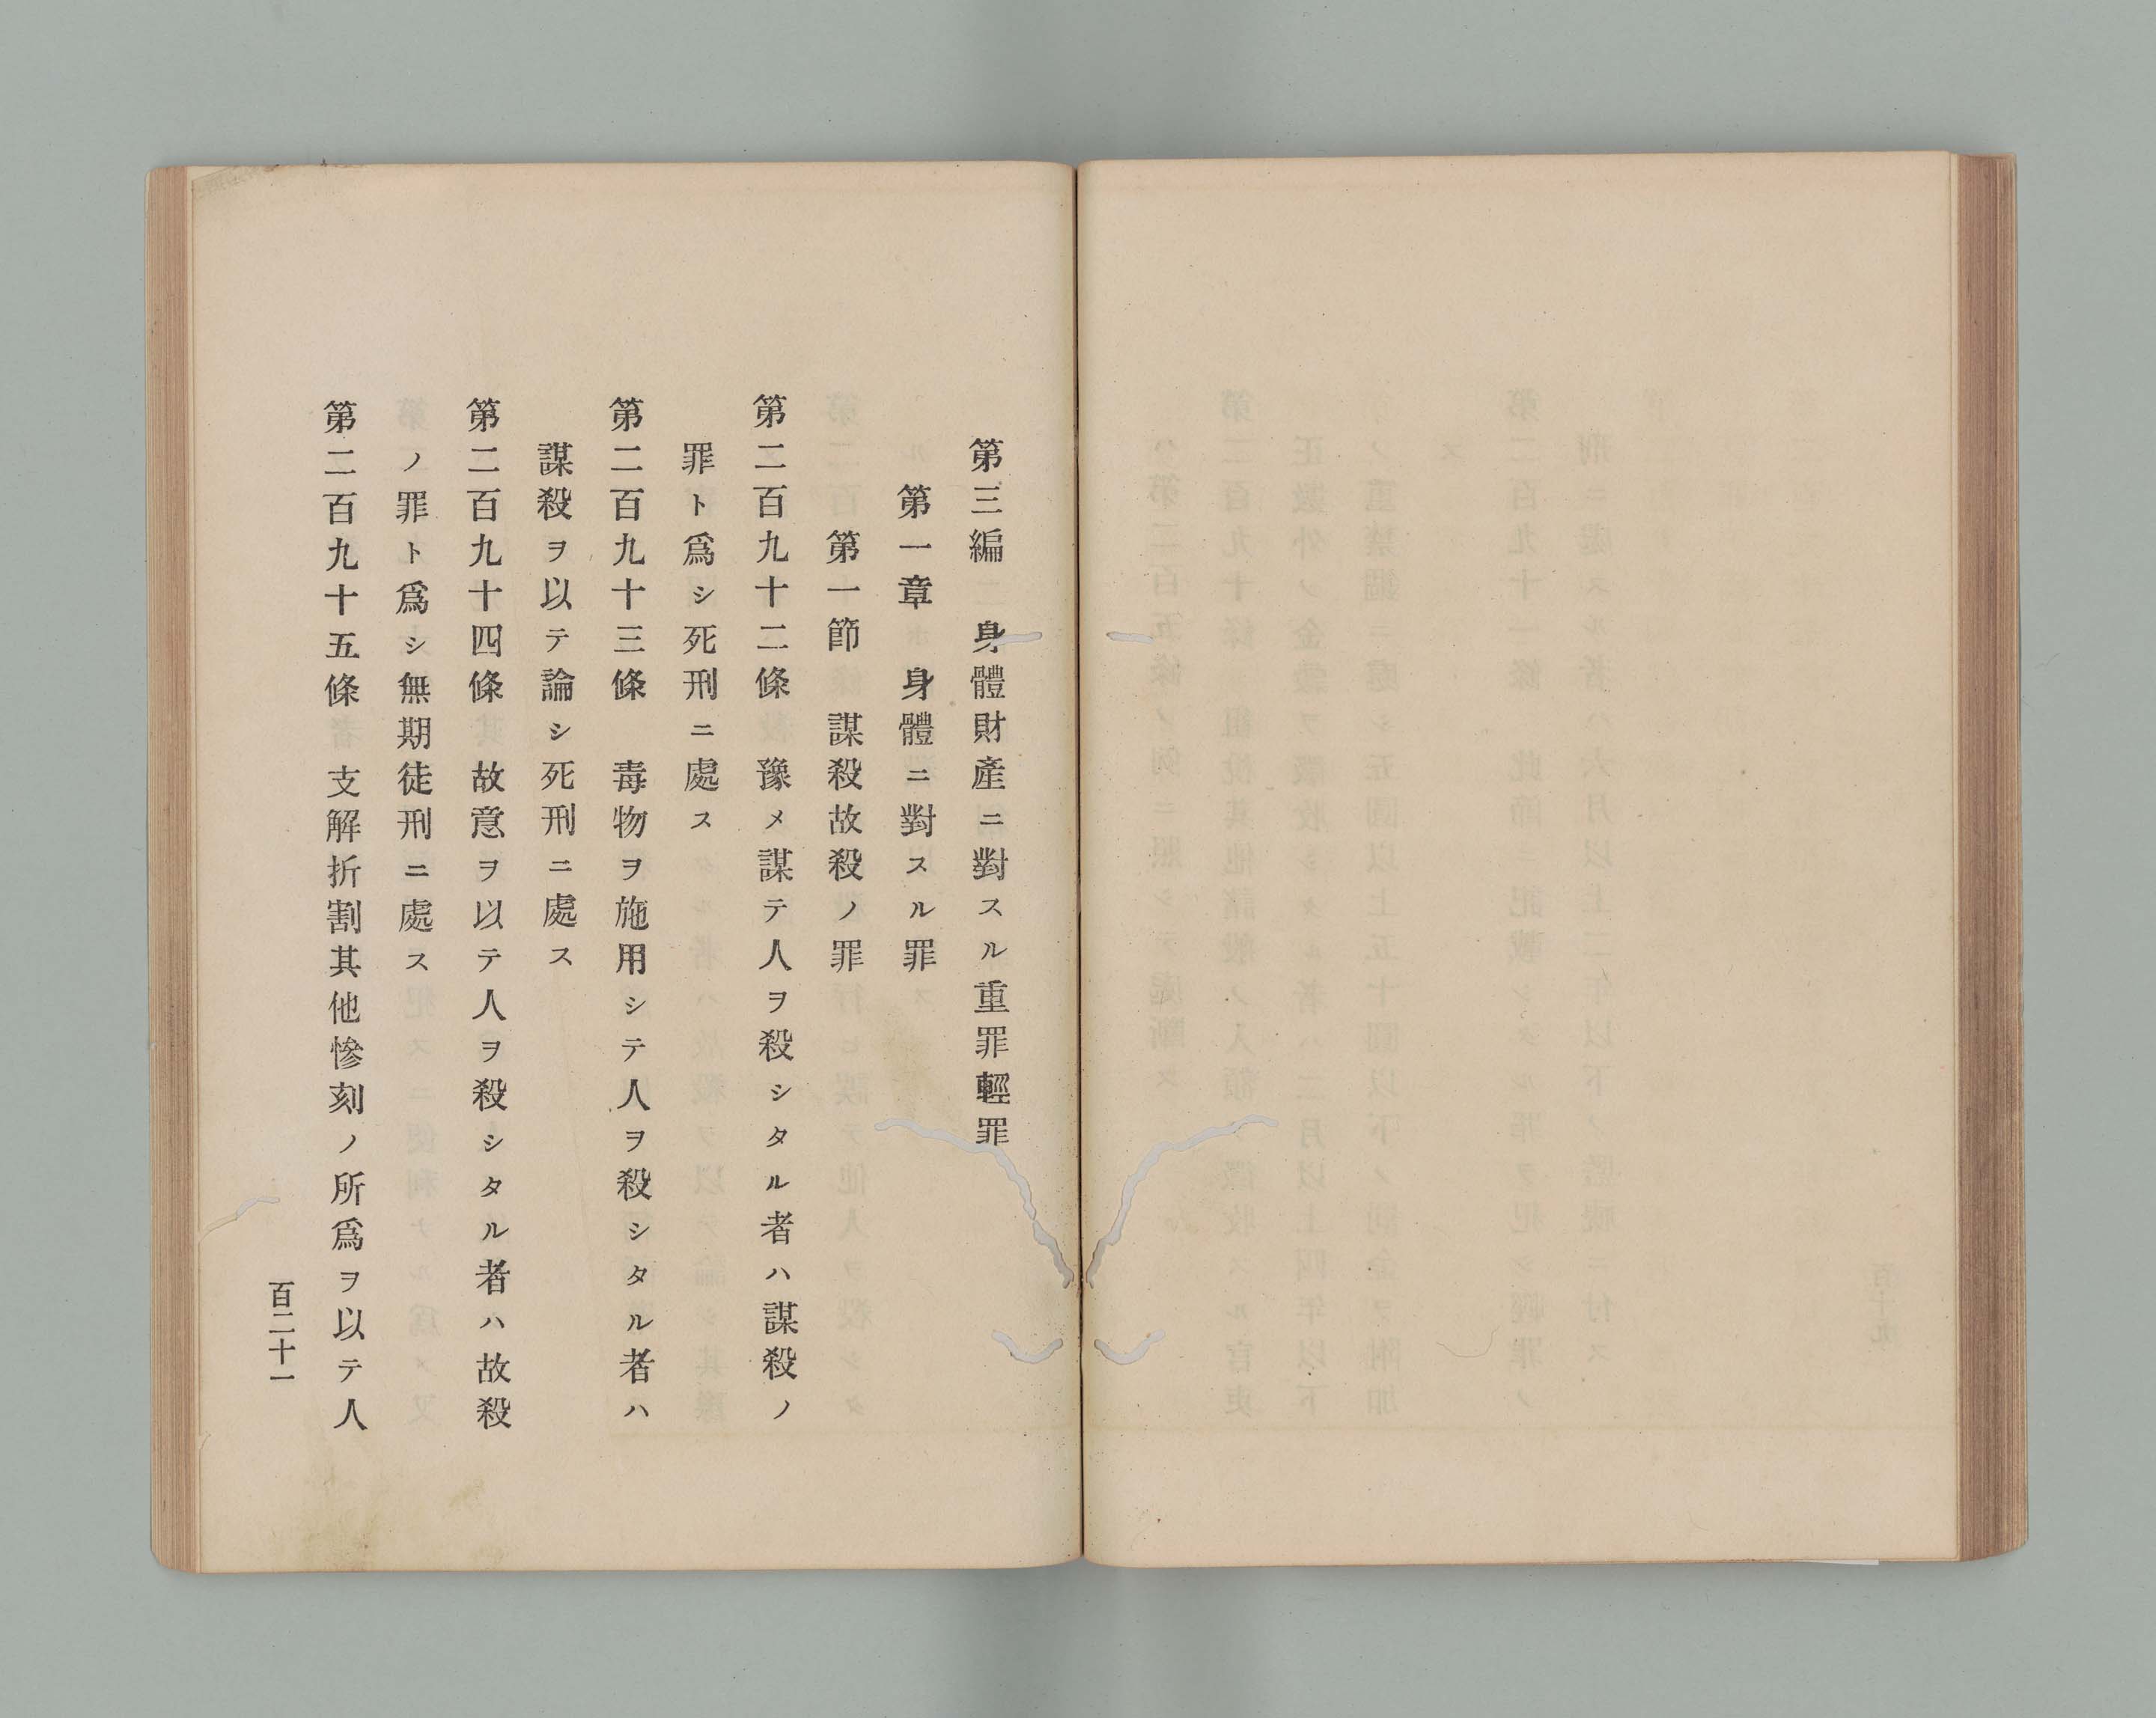 第三編　身體財產ニ對スル重罪輕罪
第一章　身體ニ對スル罪
第一節　謀殺故殺ノ罪
第二百九十二條　豫メ謀テ人ヲ殺シタル者ハ謀殺ノ
罪ト爲シ死刑ニ處ス
第二百九十三條　毒物ヲ施用シテ人ヲ殺シタル者ハ
謀殺ヲ以テ論シ死刑ニ處ス
第二百九十四條　故意ヲ以テ人ヲ殺シタル者ハ故殺
ノ罪ト爲シ無期徒刑ニ處ス
第二百九十五條　支解折割其他慘刻ノ所爲ヲ以テ人
百二十一